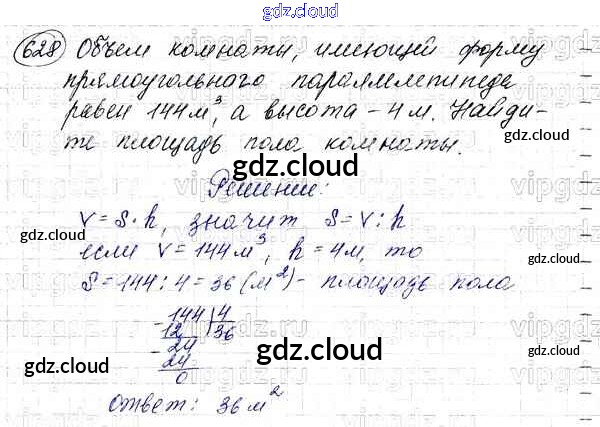 gdz.cloud
628 Объем комнаты, имеющей форму
gdz.cloud
прямоугольного параллелепипеда
равен 144 м³, а высота – 4 м. Найди-
те площадь пола комнаты.
gdz.cloud
Решение:
V = S · h, значит S = V : h
если V = 144 м³, h = 4 м, то
gdz.cloud
S = 144 : 4 = 36 (м²) – площадь пола
144 | 4
12 36
24
24
0
gdz.cloud gdz.cloud gdz.cloud
ответ: 36 м²